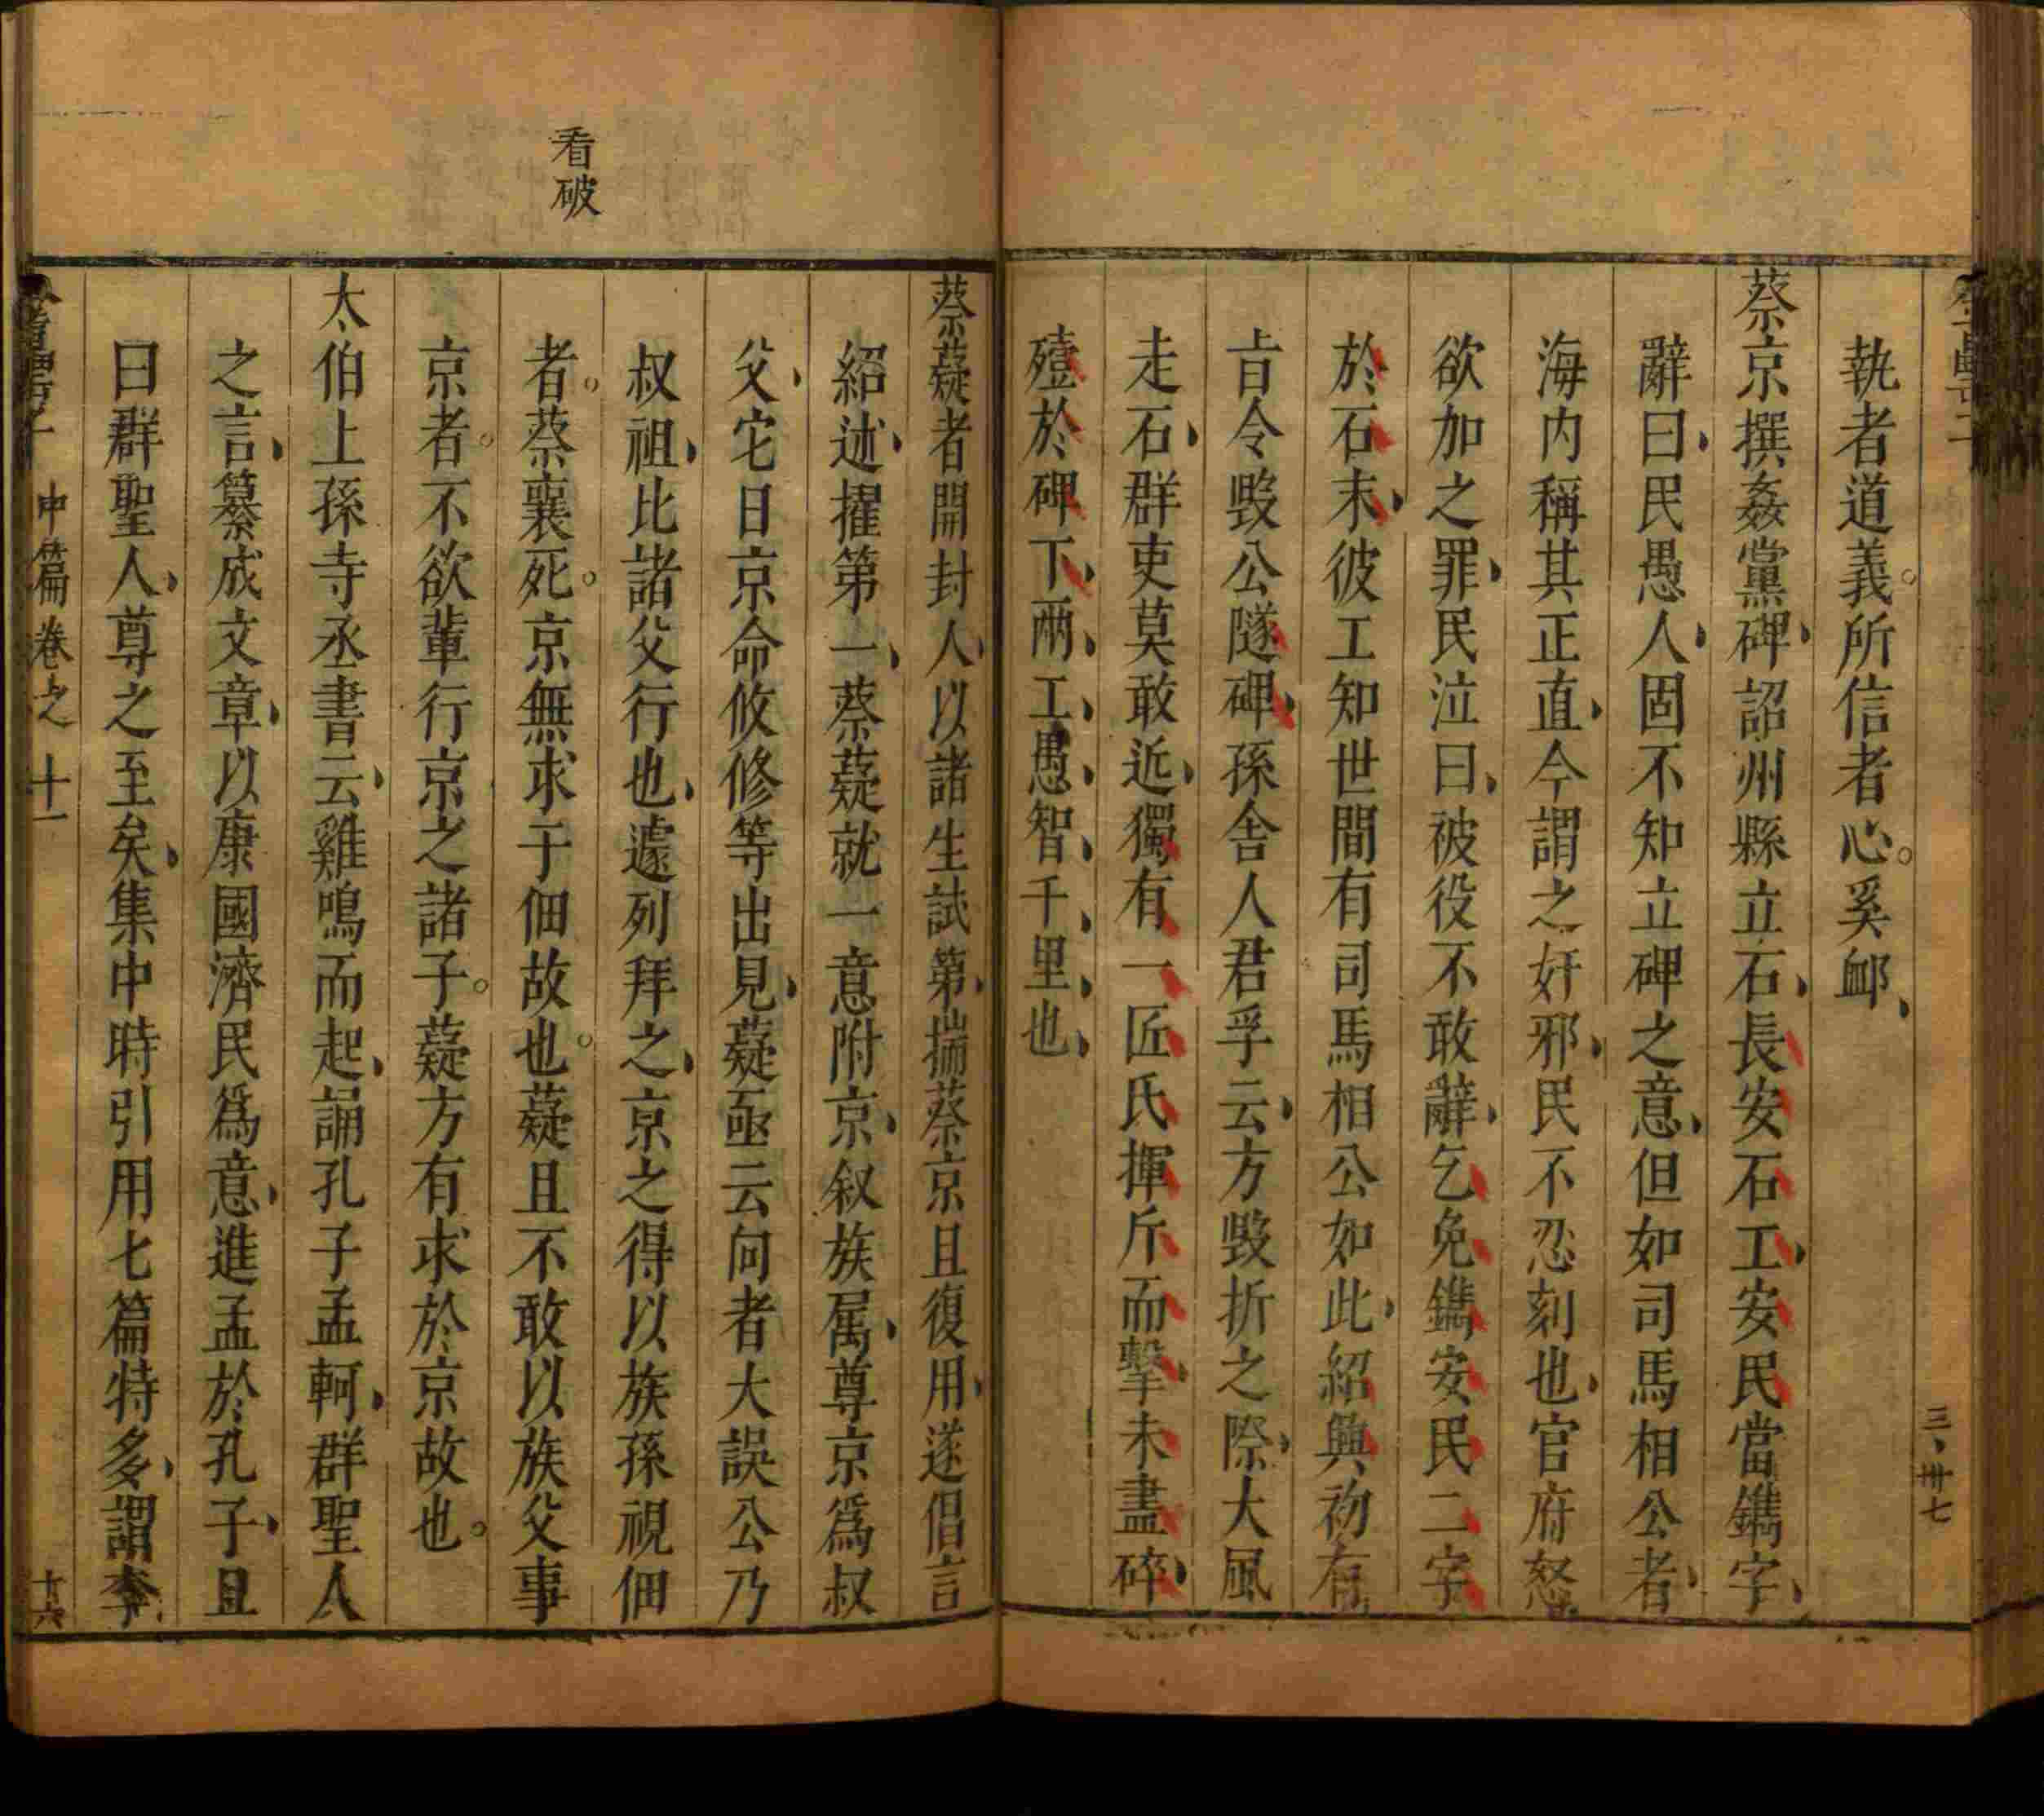 三卅七
執者道義所信者心奚衈
蔡京撰姦黨碑詔州縣立石長安石工安民當鐫字
辭曰民愚人固不知立碑之意但如司馬相公者
海内稱其正直今謂之奸邪民不忍刻也官府怒
欲加之罪民泣曰被役不敢辭乞免鐫安民二字
於石末彼工知世間有司馬相公如此紹興初有
㫖令毀公隧碑孫舍人君孚云方毀折之際大風
走石群吏莫敢近獨有一匠氏揮斤而擊未盡碎
殪於碑下兩工愚智千里也
看破
蔡薿者開封人以諸生試第揣蔡京且復用遂倡言
紹述擢第一蔡薿就一意附京叙族属尊京爲叔
父它日京命攸修等出見薿亟云向者大誤公乃
叔祖比諸父行也遽列拜之京之得以族孫視佃
者蔡襄死京無求于佃故也薿且不敢以族父事
京者不欲輩行京之諸子薿方有求於京故也
太伯上孫寺丞書云雞鳴而起誦孔子孟軻群聖人
之言纂成文章以康國濟民爲意進孟於孔子且
曰群聖人尊之至矣集中時引用七篇特多謂李
中篇卷之十一
十六